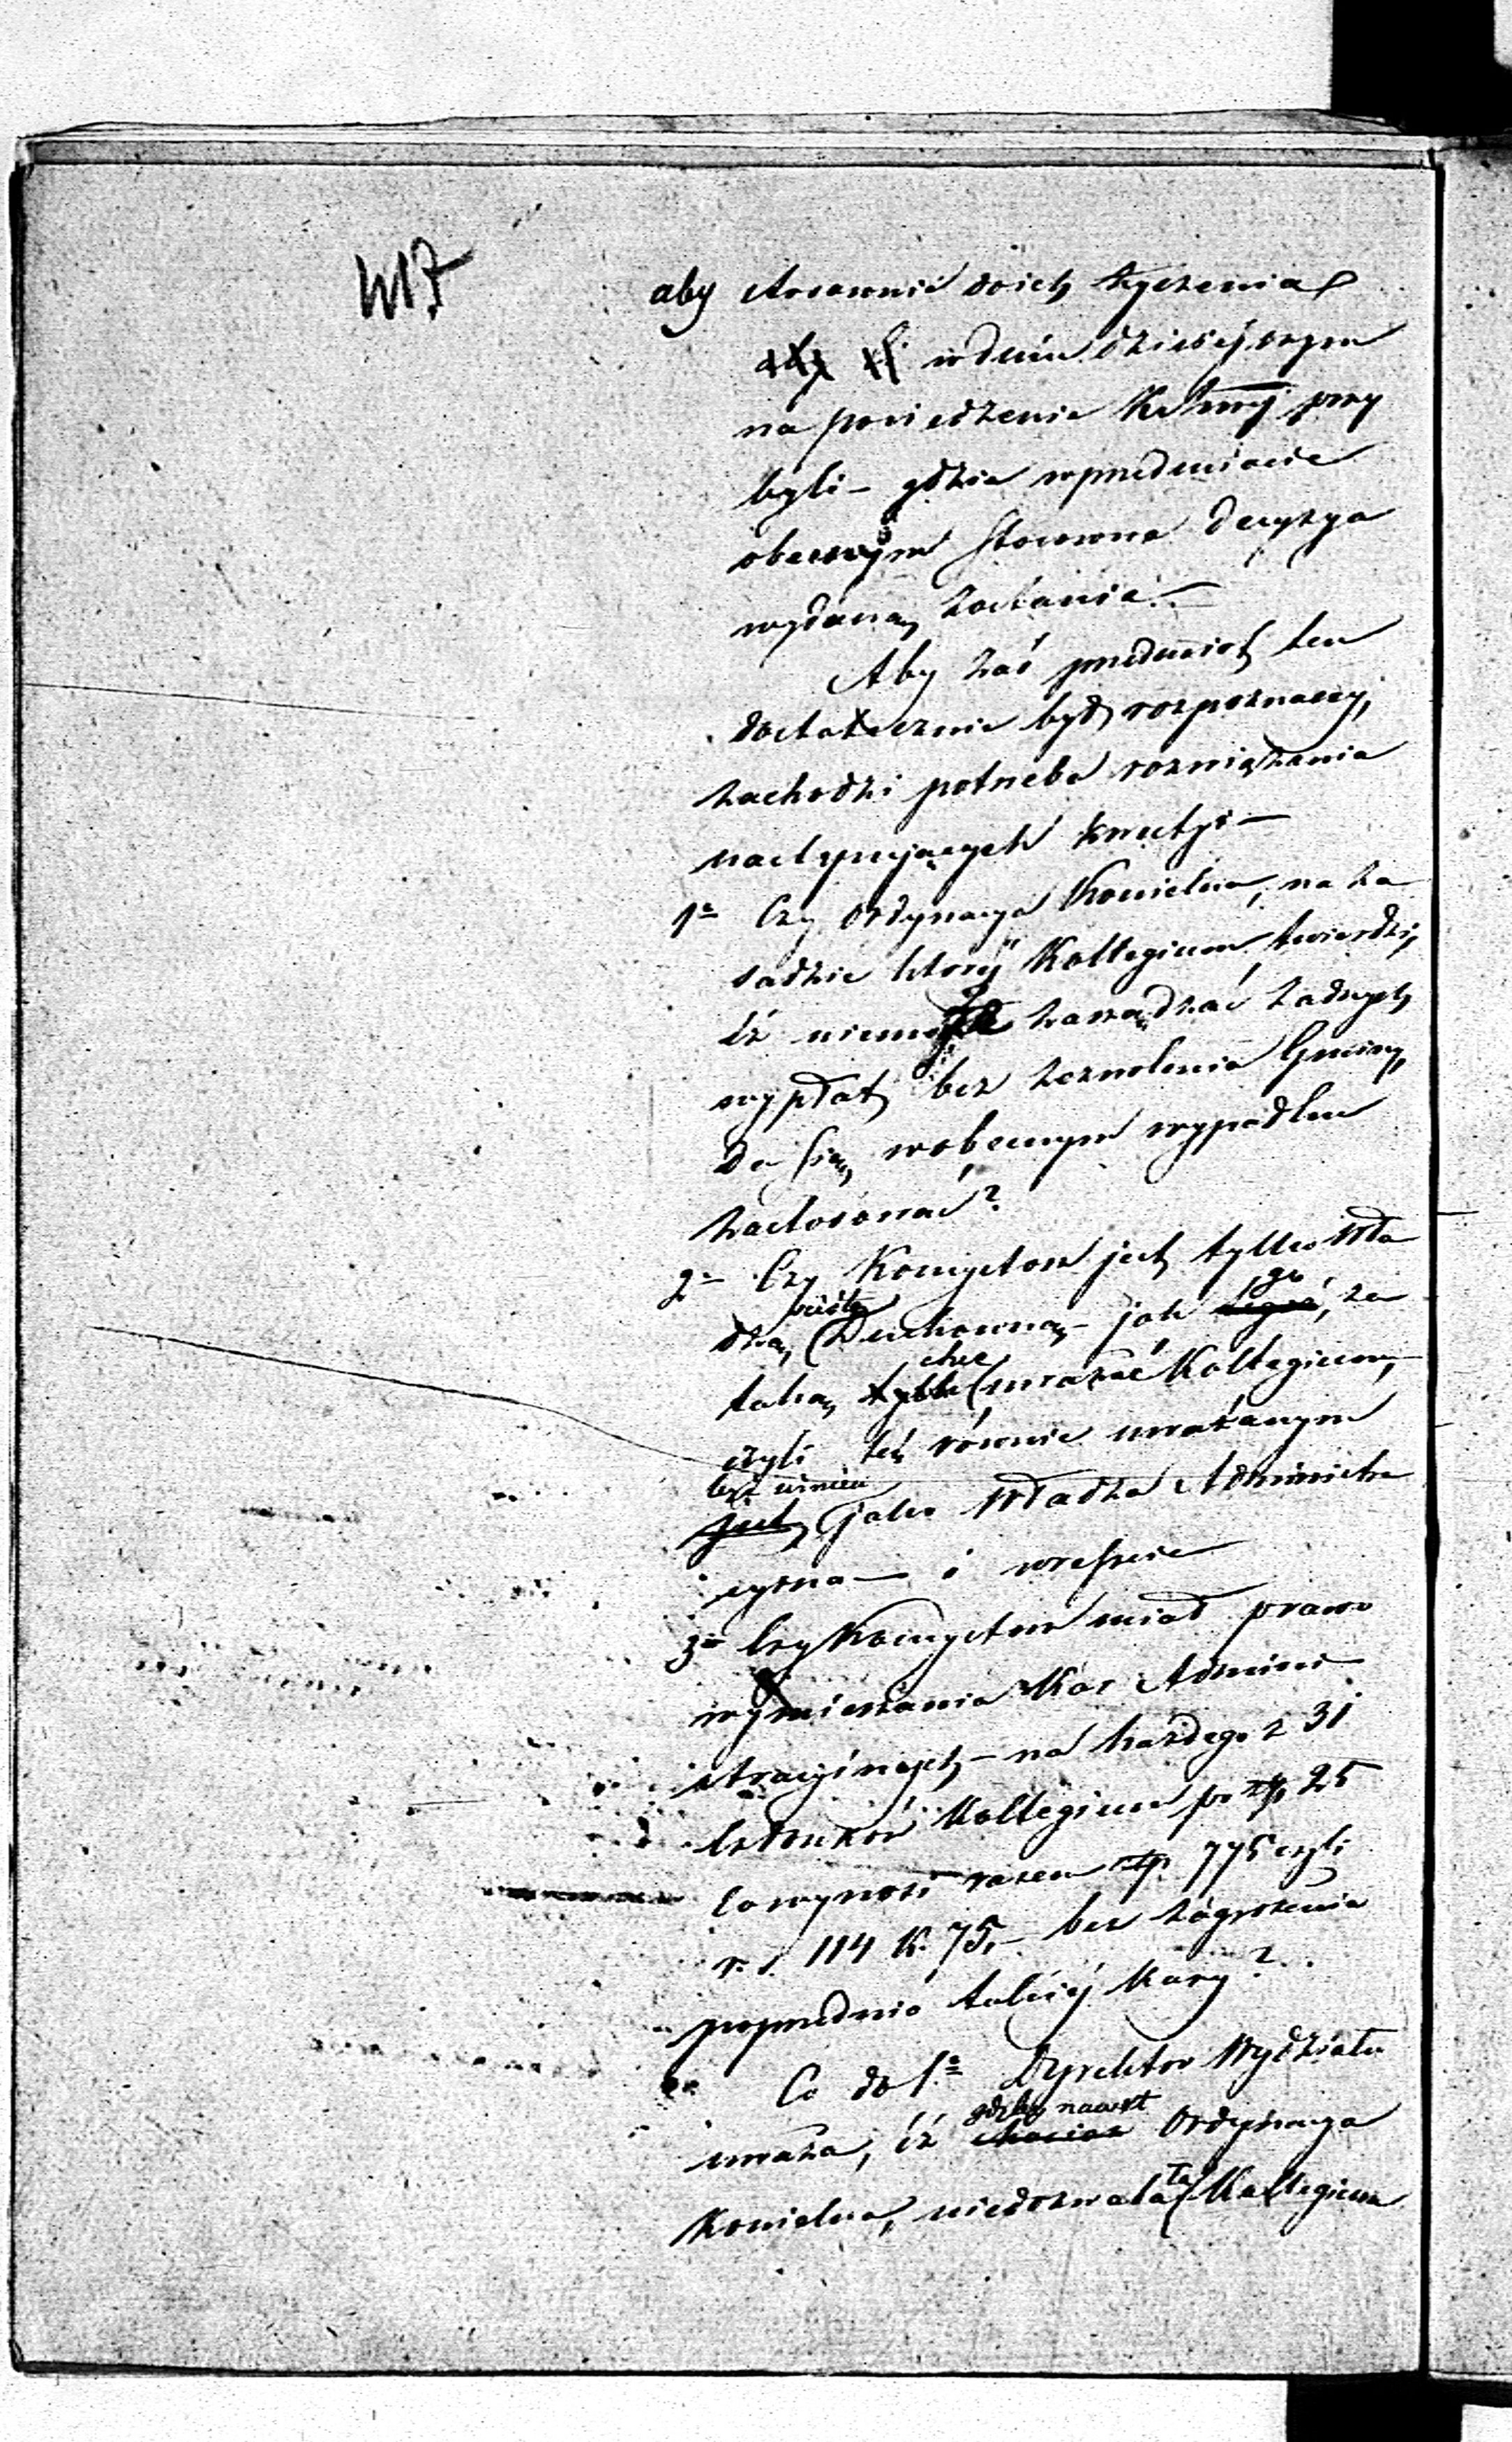 417
aby stosownie do ich życzenia
w dniu dzisiejszym
na posiedzenie przy
byli – gdzie w przedmiocie
obecnym stosowna decyzya
wydaną zostanie. –
Aby zaś przedmiot ten
dostatecznie był rozpoznany,
zachodzi potrzeba rozwiązania
następujących kwestyi –
1o Czy Ordynacya Kościelna, na za
sadzie której Kollegium twierdzi,
iż niemoże zarządzać żadnych
wypłat bez zezwolenia Gminy,
da się w obecnym wypadku
zastosować?
2o Czy Konsystorz jest tylko Wła
go
dzą czysto Duchowną – jak, za
chce
taką tylko uważać Kollegium,
czyli też równie uważanym
być winien
jest, jako Władza Administra
cyjna – i wreszcie
3o Czy Konsystorz miał prawo
wymierzania Kar Admini
stracyjnych – na każdego z 31
Członków Kollegium po złp. 25
co wynosi razem złp. 775 czyli
r. s. 114 k. 75, – bez zagrożenia
poprzednio takiéj kary?
Co do 1o Dyrektor Wydziału
gdyby nawet
uważa, iż chociaż Ordynacya
ta
Kościelna, niedozwalała Kollegium